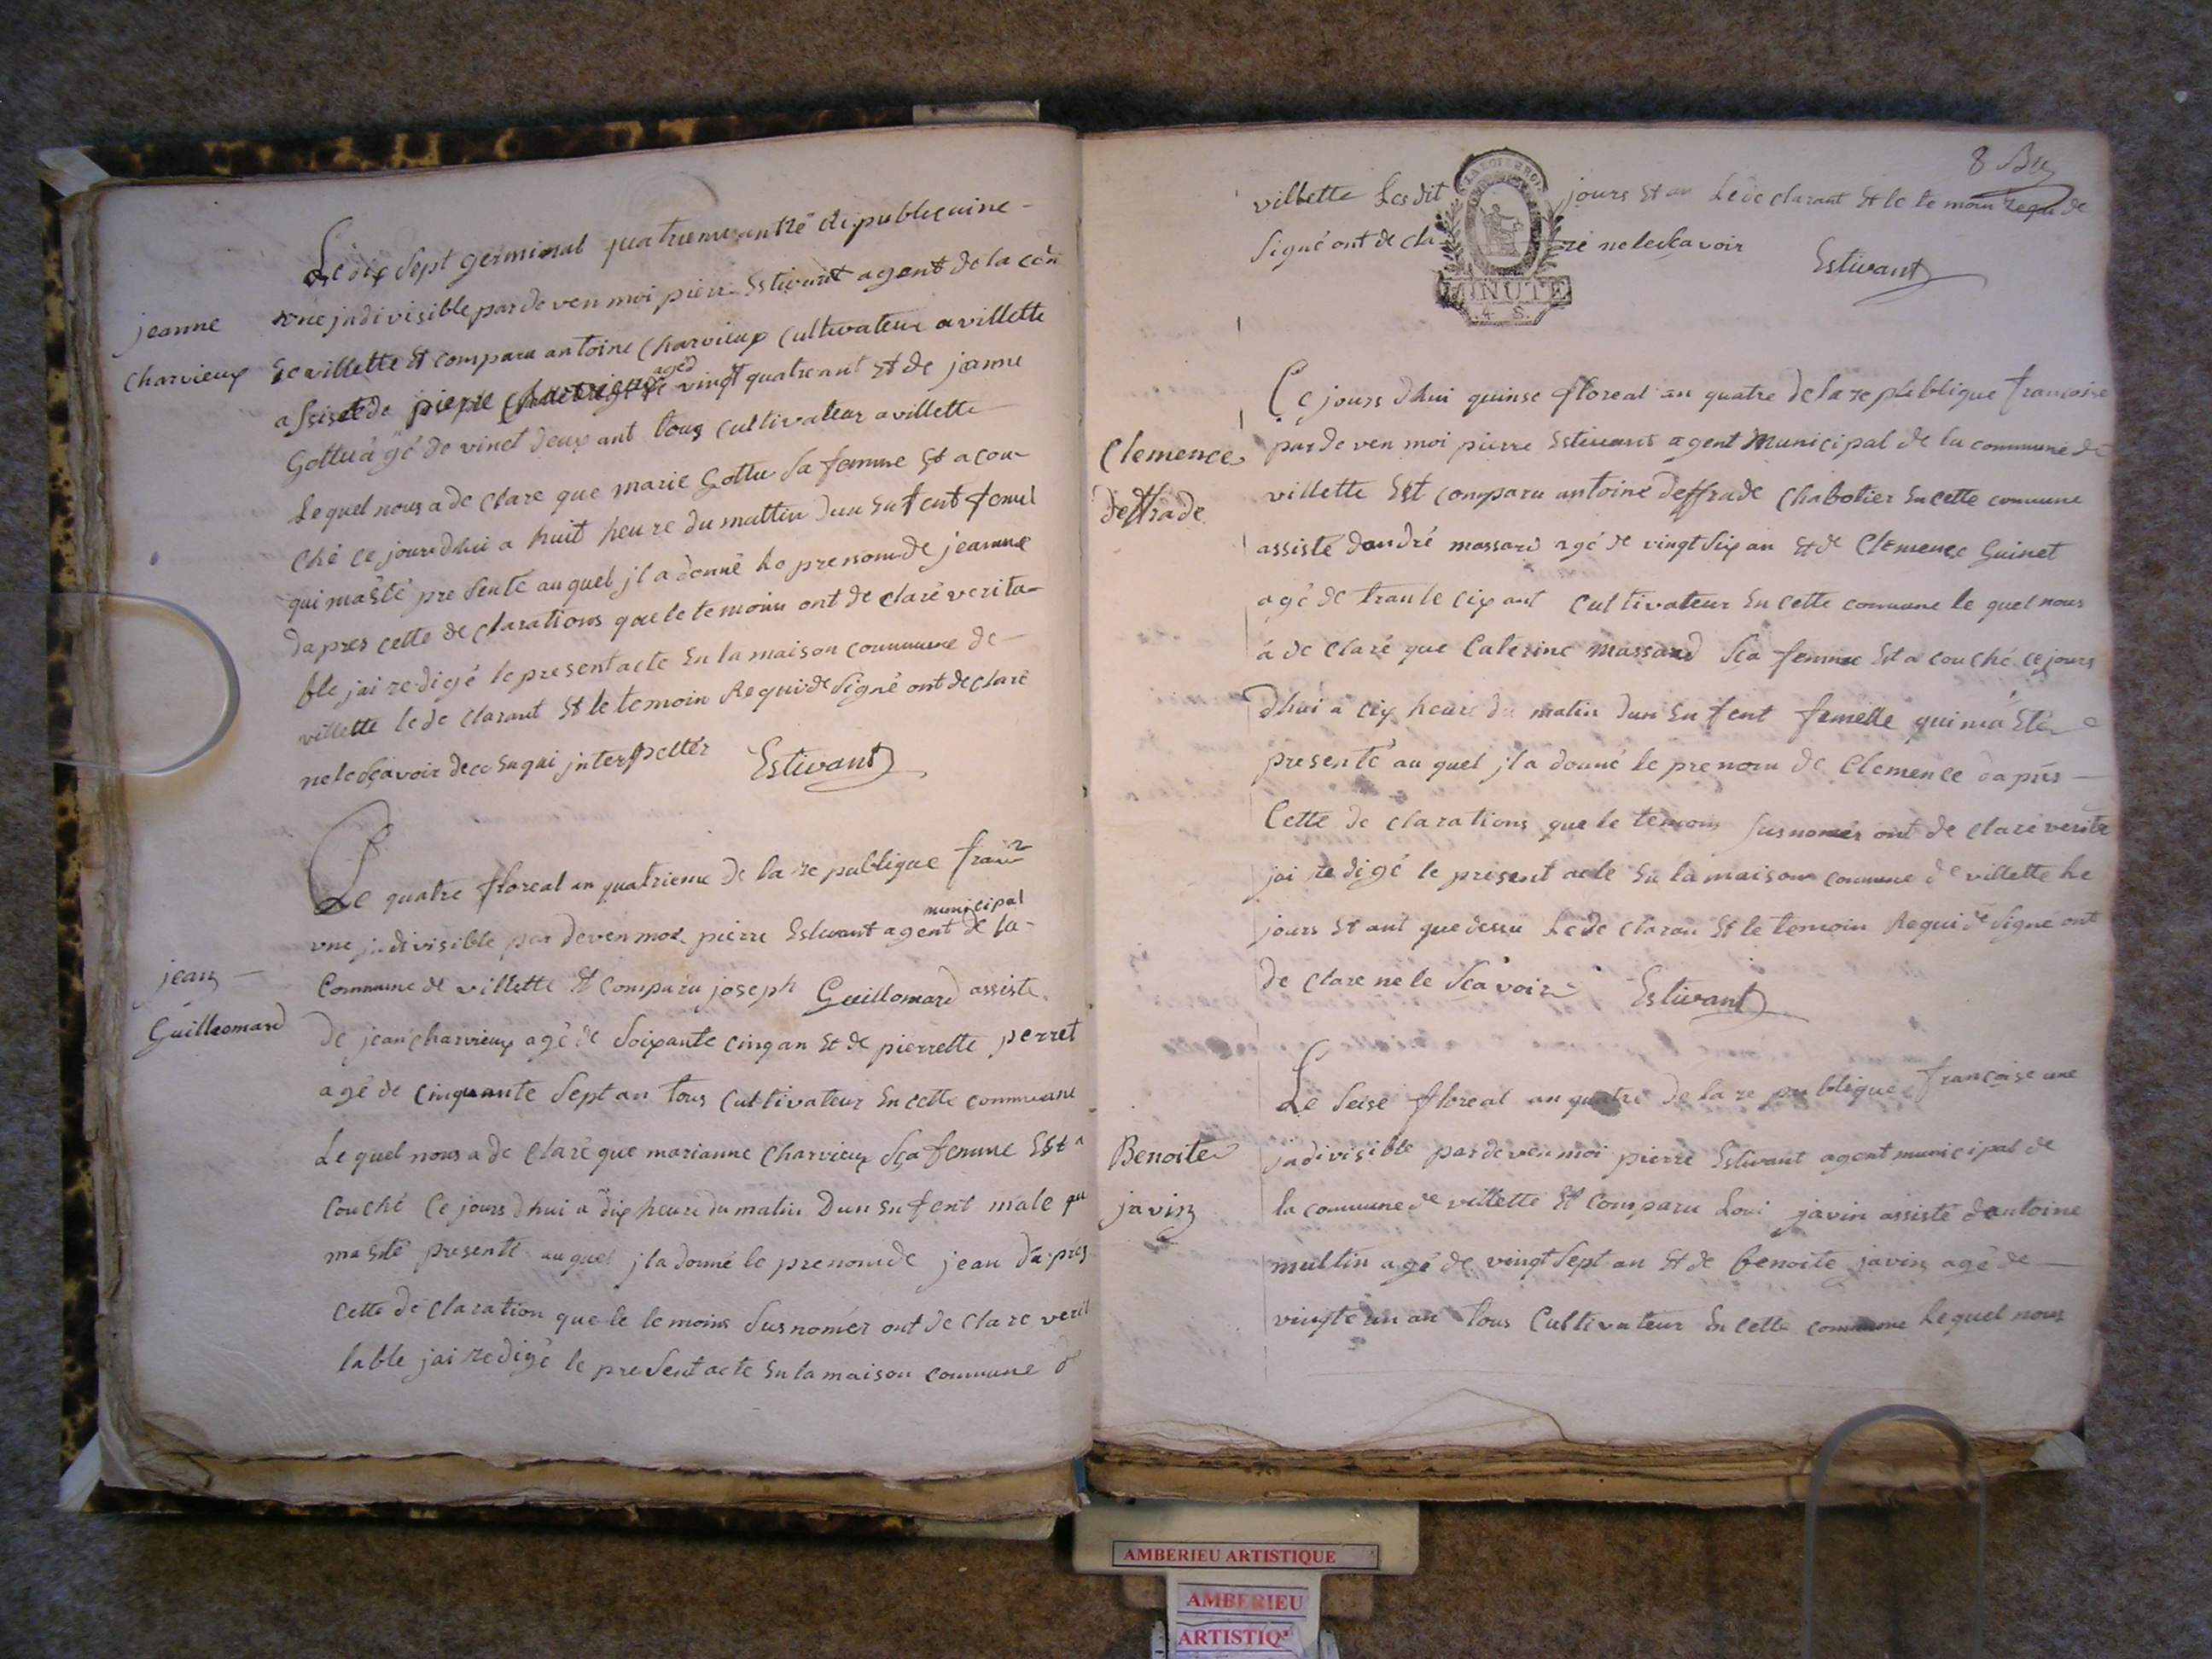 Le dix sept germinal quatrieme année Republicaine
une jndivisible par de ven moi pierre Estivant agent de la con
jeanne
charvieux
de villette Et comparu antoine Charvieux Cultivateur a villette
assiste de pierre agéd vingt quatre ant Et de janne
Gottu agé de vinct deux ant tous cultivateur a villette
Le quel nous a de clare que marie Gottu Sa femme Et a cou
ché ce jourd'hui a huit heure du mattin dun Enfent femel
qui ma Eté presenté au quel jl a donné Le prenom de jeanne
dapres cette de clarations que le temoin ont de claré verita
ble jai redigé le present acte En la maison commune de
villette le de clarant Et le temoin Requi de Signé ont declaré
ne le Sçavoir de ce Enqui jnterpellér Estivant
Le quatre floreal an quatrieme de la re publique fran
une jndivisible par deven moi pierre Estivant agent municipal de la
jean
Guilleomard
Commune de villette Et comparu joseph Guillomard assiste
de jean charvieux agé de Soixante cinq an Et de pierrette perret
agé de Cinquante Sept an tous Cultivateur En cette commune
Le quel nous a de claré que marianne Charvieux Sça femme Est a
Couché Ce jours dhui a dix heure du matin Dun Enfent male qu
ma Eté presenté au quel jl a donné le prenom de jean dapres
Cette de claration que le temoins Susnomér ont de clare verit
table jai redigé le present acte En la maison commune d
8
villette Les dit jours Et an Le de clarant Et le temoin Requi de
Signé ont de cla ré ne le sçavoir
Estivant
MINUTE
4 S.
Ce jours dhui quinse floreal an quatre de la republique francoise
Clemence
deffrade
par de ven moi pierre Estivant agent municipal de la commune de
villette Est comparu antoine deffrade Chabotier En cette commune
assisté dandré massard agé de vingt Six an Et de Clemence Guinet
agé de trante cix ant Cultivateur En cette commune le quel nous
á de claré que Caterine massard Sça femme Est a couché ce jours
dhui a cix heure du matin dun Enfent femelle qui má Eté
presenté au quel jl a donné le prenom de Clemence dapres
Cette de clarations que le temoin Susnomér ont de claré verita
jai redigé le present acte En la maison commune de villette Le
jours Et ant que dessu Le de claran Et le temoin Requi de Signé ont
de clare ne le Sçavoir Estivant
Le Seise floreal an quatre de la re publique francoise une
Benoite
javin
jndivisible par de ven moi pierre Estivant agent municipal de
la commune de villette Et Comparu Loui javin assisté dantoine
multin agé de vingt Sept an Et de benoite javin agé de
vingte un an tous Cultivateur En cette commune Lequel nous
AMBERIEU ARTISTIQUE
AMBERIEU
ARTISTIQ